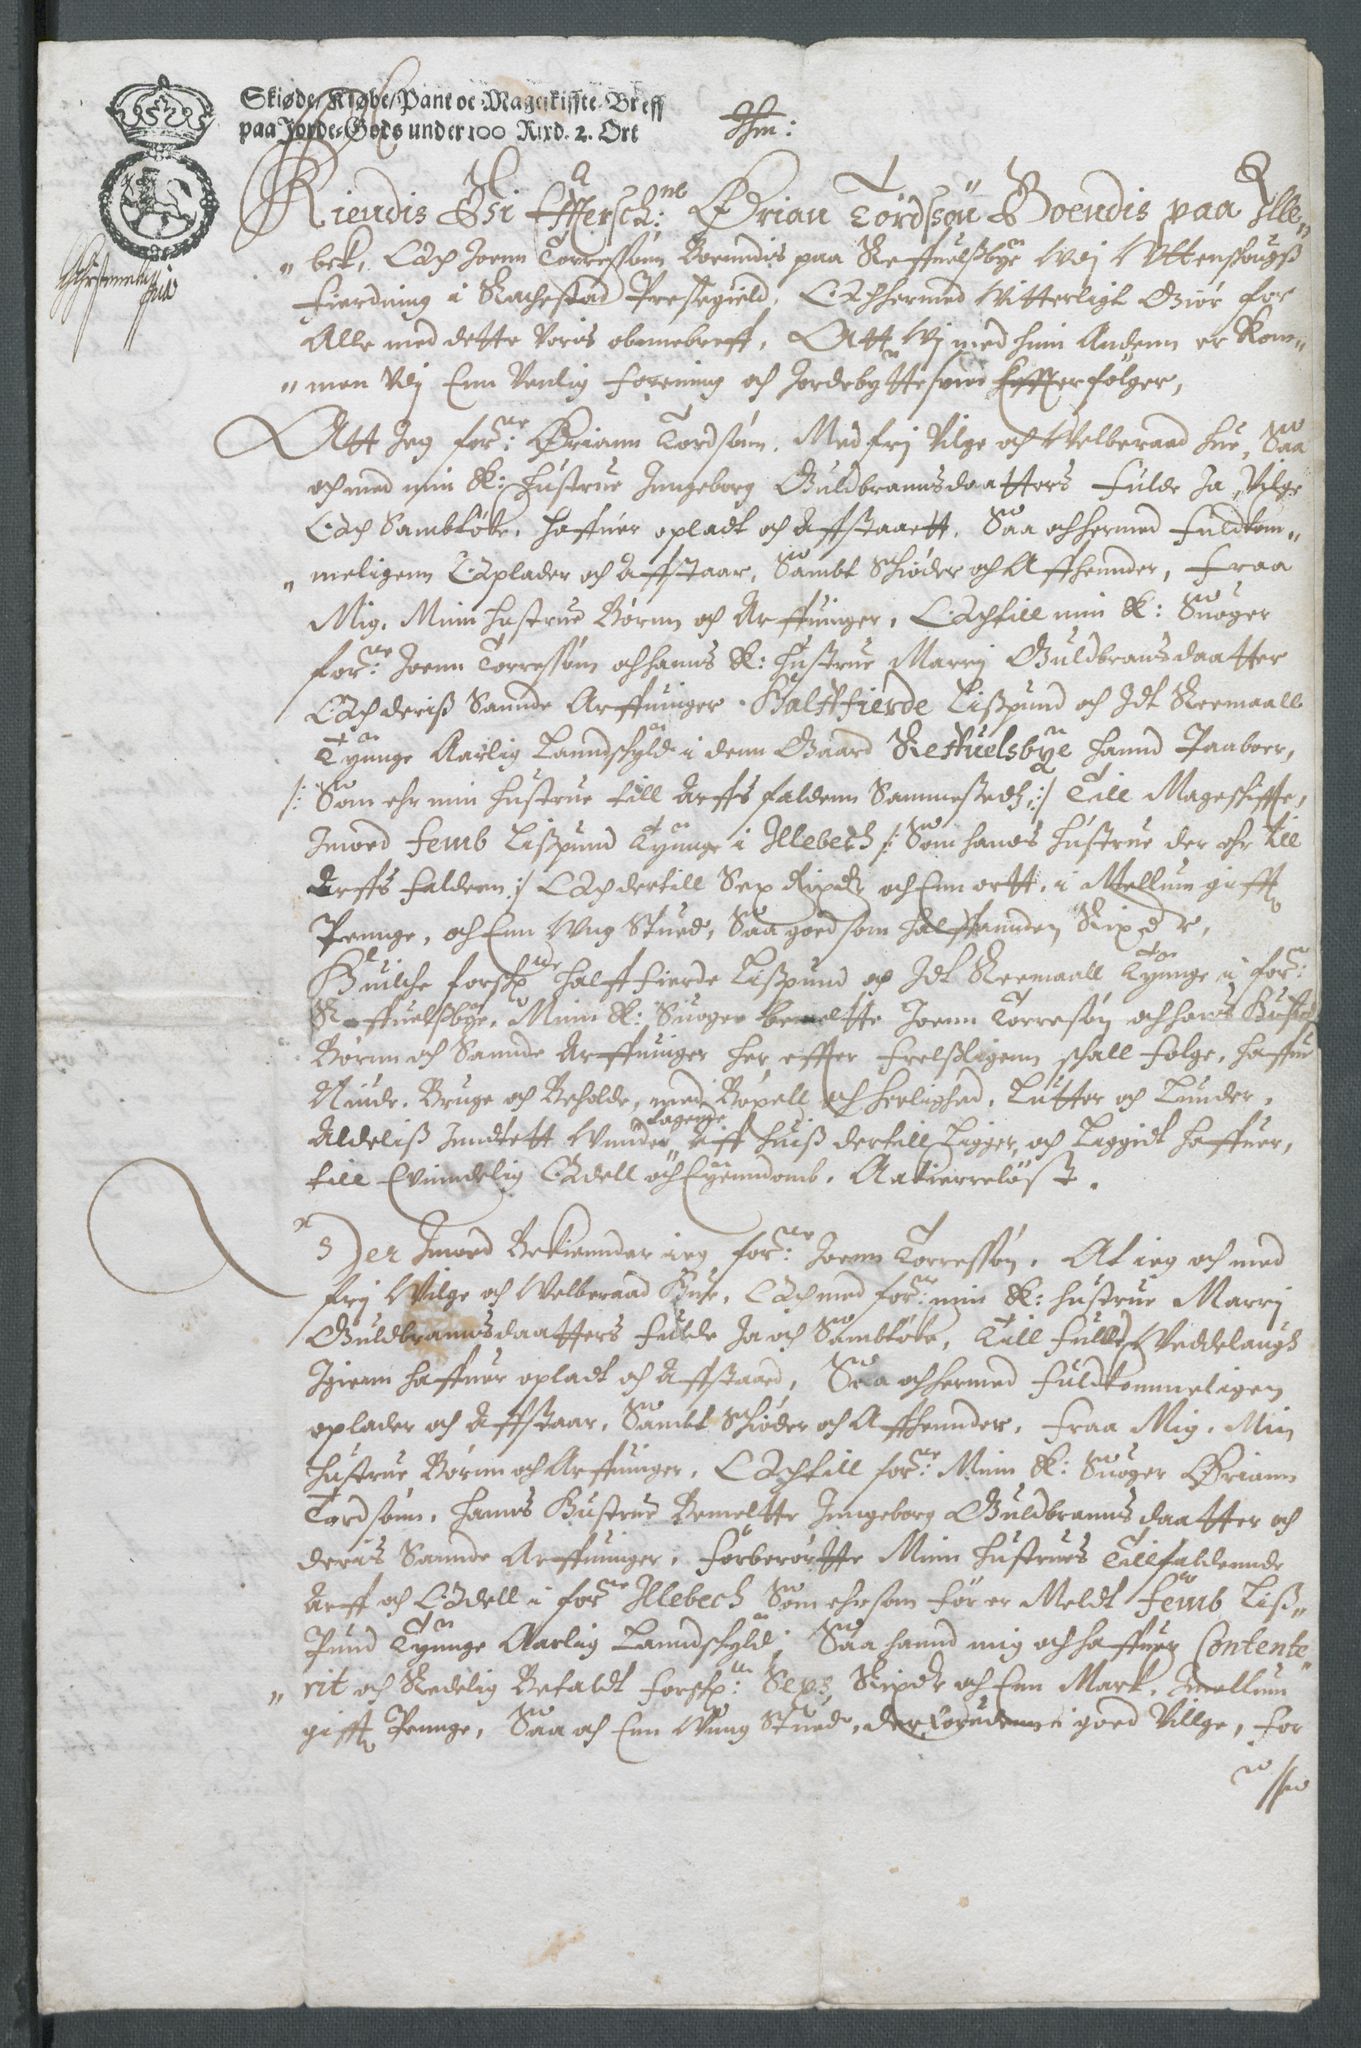 Skiøde/ Kiøbe/ Pant oc Mageskiffte Breff
paa Jorde Gods under 100 Rixd. 2. Ort
Kiendis Vi Effterschr:ne Ørian Tordssøn Boendis paa Ille„
„bek, Och Joenn Torressønn Boendis paa Reffuelsbye Udj Uttenschougs
Fierdning i Rachestad Prestegield, Och hermed Witterligt Giør for
Alle med dette voris obnnebreff, Att Wj med huin Andenn er Kom„
„men Udj Enn Venlig Forening och Jordebytte som Effterfølger,
Att Jeg for:ne Øriann Tordsønn, Med frj Vilge och Welberaad hue, Saa
och med min K: Hustrue Jngeborg Guldbrannsdaatters Fulde Ja, Vilge
Och Sambtøke, haffuer opladt och Affstaaett, Saa och hermed Fuldkom„
„meligenn Oplader och Affstaar, Sambt Schiøder och Affhennder, Fraa
Mig, Minn hustrue Børnn och Arffuinger, Och till min K: Suoger
for:ne Joenn Torressønn och hanns K: Hustrue Marrj Guldbransdaatter
Och deris Sannde Arffuinger. Halffierde Lispund och Jdt Remaall
Tyunge Aarlig Lanndschyld i denn Gaard Reffuelsbye hannd Paaboer,
/: Som ehr min hustrue till Arffs faldenn Sammestedz :/ Till Mageschiffte,
Jmoed Femb Lispund Tyunge i Illebech /: Som hanns hustrue der ehr till
Arffs falden :/ Och dertill Sex Rixdr och Enn ortt, i Mellum gifft
Penge, och Enn Ung Stued, Saa goed som halffannden Rixdr,
Huilche forschr:ne halffierde Lispund och Jdt Remaall Tyunge i for:ne
Reffuelsbye, Minn K: Suoger bemeltte Joenn Torresøn och hans Hustrue
Børnn och Sannde Arffuinger her effter Frelsligenn schall følge, haffue
Niude, Bruge och Beholde, med Bøxell och herlighed, Lutter och Lunder,
Aldelis Jndtett Unndertagende aff huis dertill Ligger, och Liggidt haffuer,
till Evindelig Odell och Eyenndomb, Aakierreløst.
Der Jmoed Bekiennder ieg for:ne Joenn Torressøn, At ieg och med
frj Vilge och Welberaad Hue, Och med for:ne min K: hustrue Marrj
Guldbrannsdaatters Fulde Ja och Sambtøke, till Fulde Weddelaugh
Jgienn haffuer opladt och Affstaaed, Saa och hermed Fuldkommeligen
oplader och Affstaar, Sambt Schiøder och Affhennder, Fraa Mig, Min
Hustrue Børnn och Arffuinger, Och till for:ne Minn K: Suoger Øriann
Tordsønn, hanns Hustrue Bemeltte Jngeborg Guldbranns daatter och
deris Sannde Arffuinger, Forberørtte Minn hustrues Tillfaldennde
Arff och Odell i for:ne Illebech Som ehr som før er Meldt Femb Lis„
Pund Tyunge Aarlig Lanndschyld; Saa hannd mig och haffuer Contente„
„rit och Redelig Betaldt forschr:ne Sex Rixdr och Enn Mark, Jmellum
gifft Penge, Saa och Enn Ung Stued, der foruden i goed Villge, for